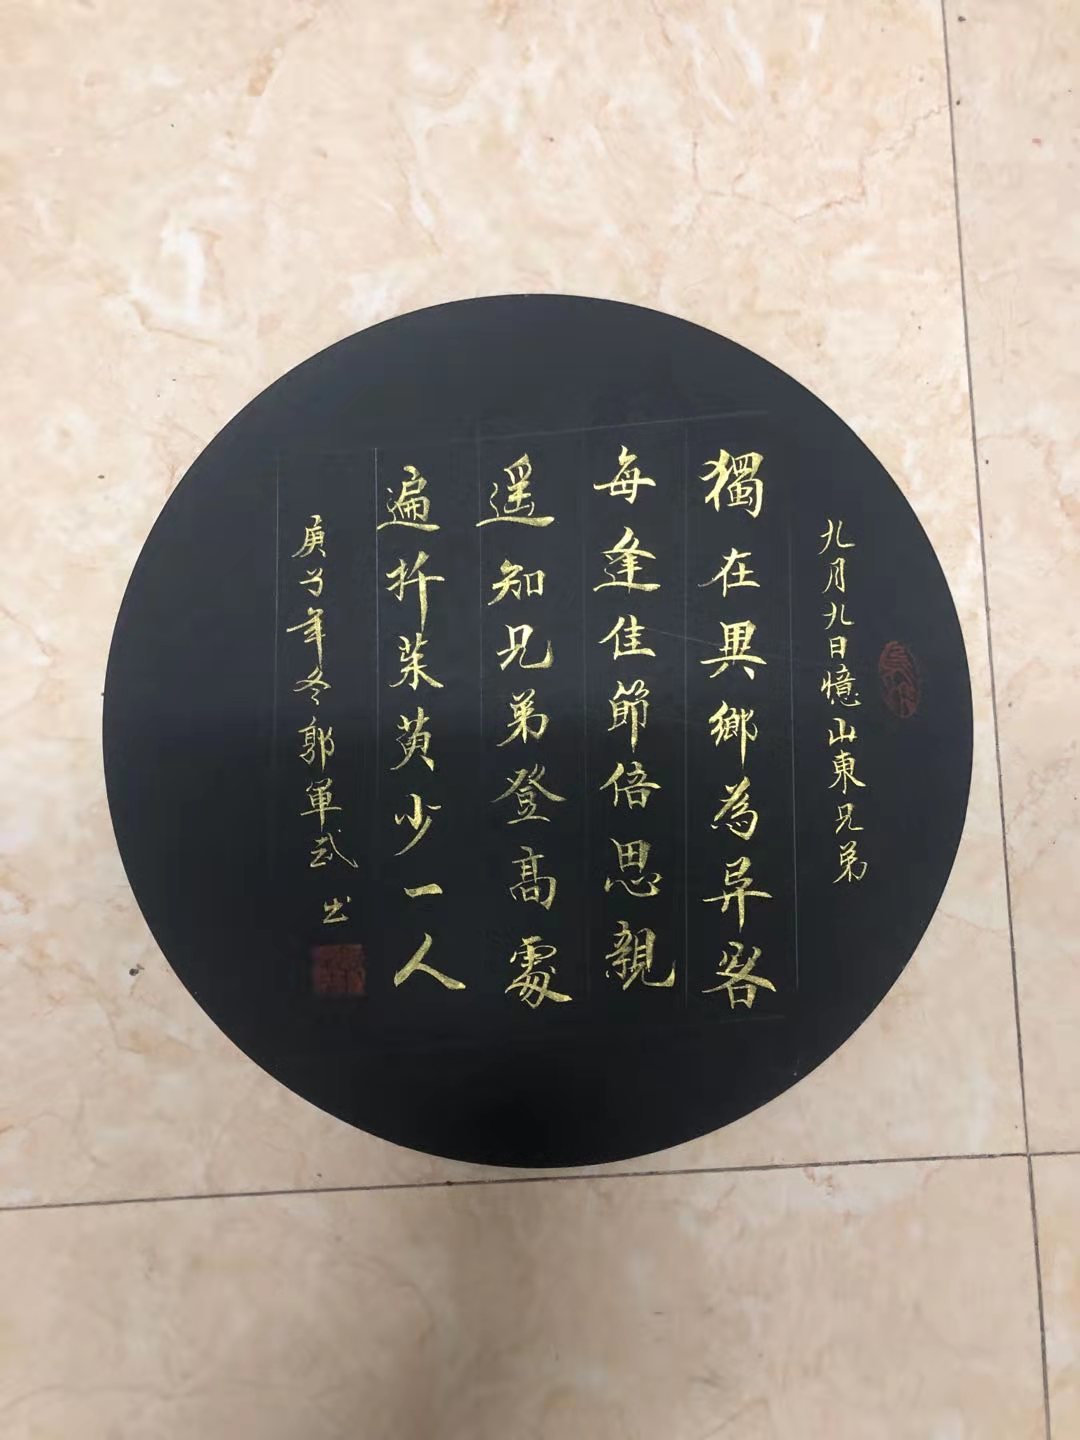 九月九日憶山東兄弟
獨在異鄉為异客
每逢佳節倍思親
遥知兄弟登高處
遍折茱萸少一人
庚子年冬郭軍武書